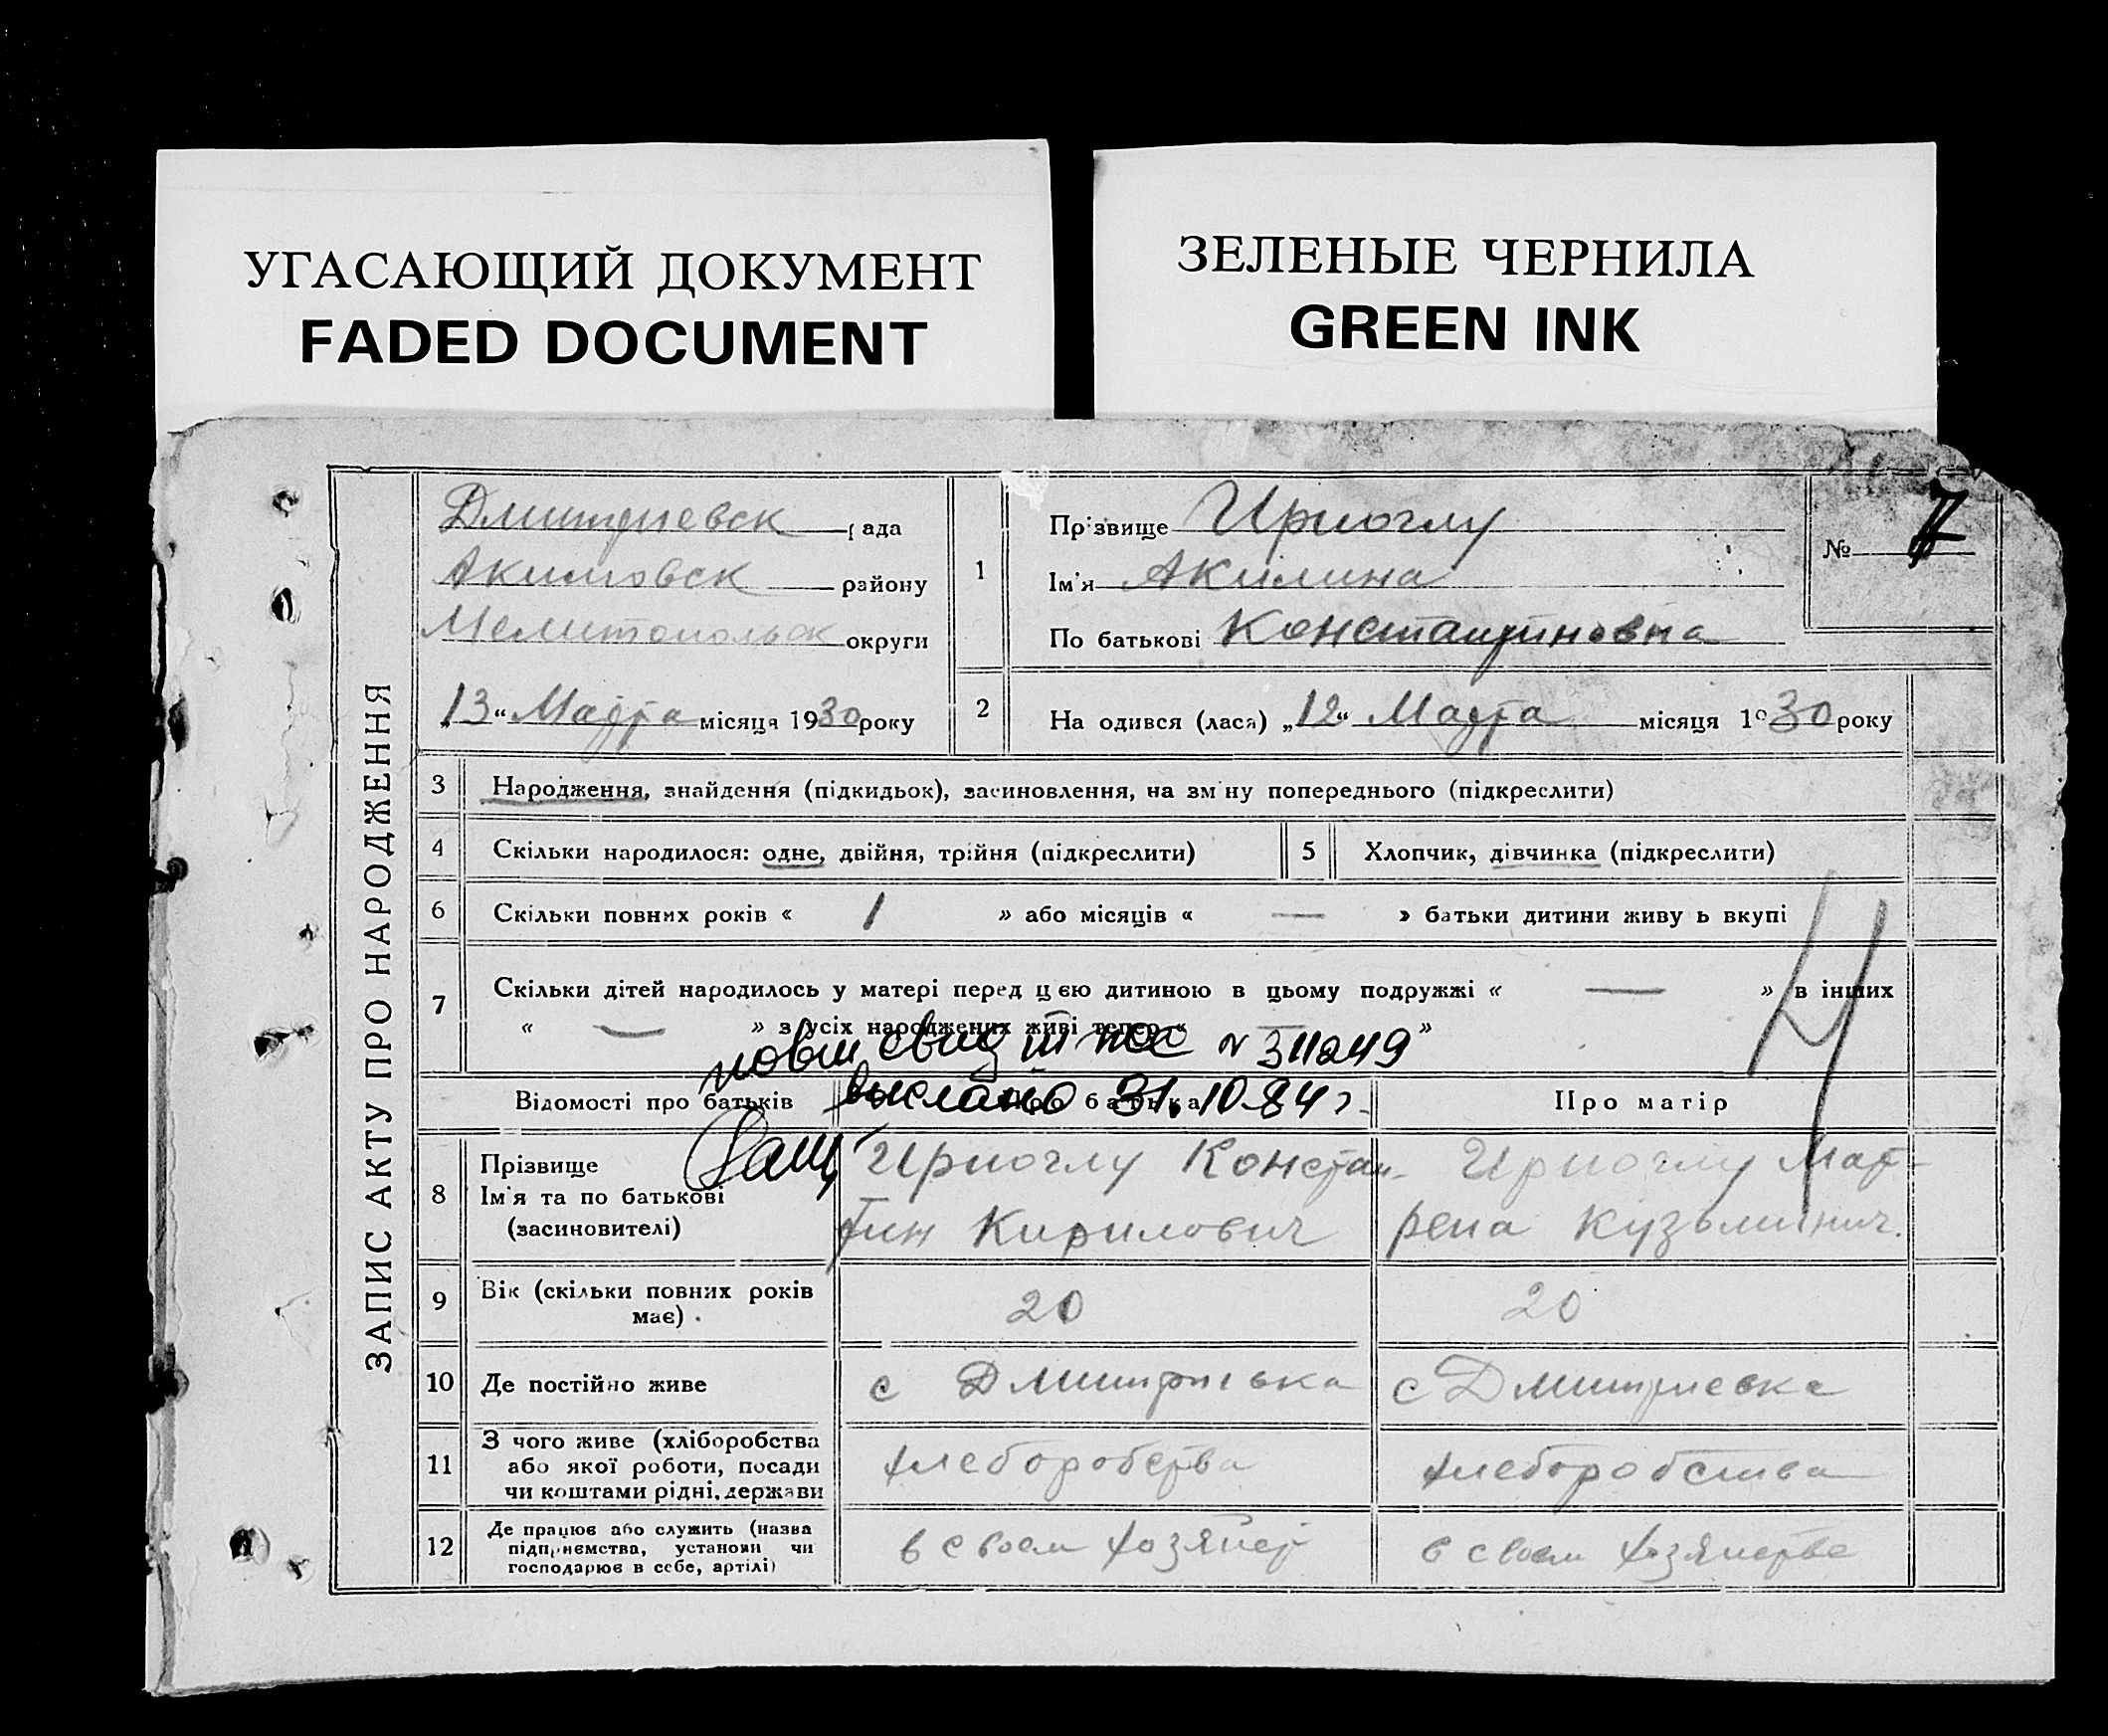 УГАСАЮЩИЙ ДОКУМЕНТ
FADED DOCUMENT
ЗЕЛЕНЫЕ ЧЕРНИЛА
GREEN INK
ЗАПИС АКТУ ПРО НАРОДЖЕННЯ
Дмитриевск рада
Акимовск району
Мелитопольск округи
„13“ Марта місяця 1930 року
1 Прізвище Ириоглу
Ім'я Акилина
По батькові Константиновна
№ 7
2 На одився (лася) „12“ Марта місяця 1930 року
3 Народження, знайдення (підкидьок), засиновлення, на зм ну попереднього (підкреслити)
4 Скільки народилося: одне, двійня, трійня (підкреслити)
5 Хлопчик, дівчинка (підкреслити)
6 Скільки повних років « 1 » або місяців « — » батьки дитини живу ь вкупі
7 Скільки дітей народилось у матері перед цією дитиною в цьому подружжі « — » в інших
« — » з усіх народжених живі тепер « — »
свид № 311249
выслано 31.10.84 г.
Відомості про батьків
Про батька
Про матір
8 Прізвище
Ім'я та по батькові
(засиновителі)
Ириоглу Констан-
тин Кирилович
Ириоглу Мат-
рена Кузьминич.
9 Вік (скільки повних років
має).
20
20
10 Де постійно живе
с Дмитриевка
с Дмитриевка
11 З чого живе (хліборобства
або якої роботи, посади
чи коштами рідні, держави
хлеборобства
хлеборобства
12 Де працює або служить (назва
підприємства, установи чи
господарює в себе, артілі)
в своем хозяйст
в своем хозяйстве